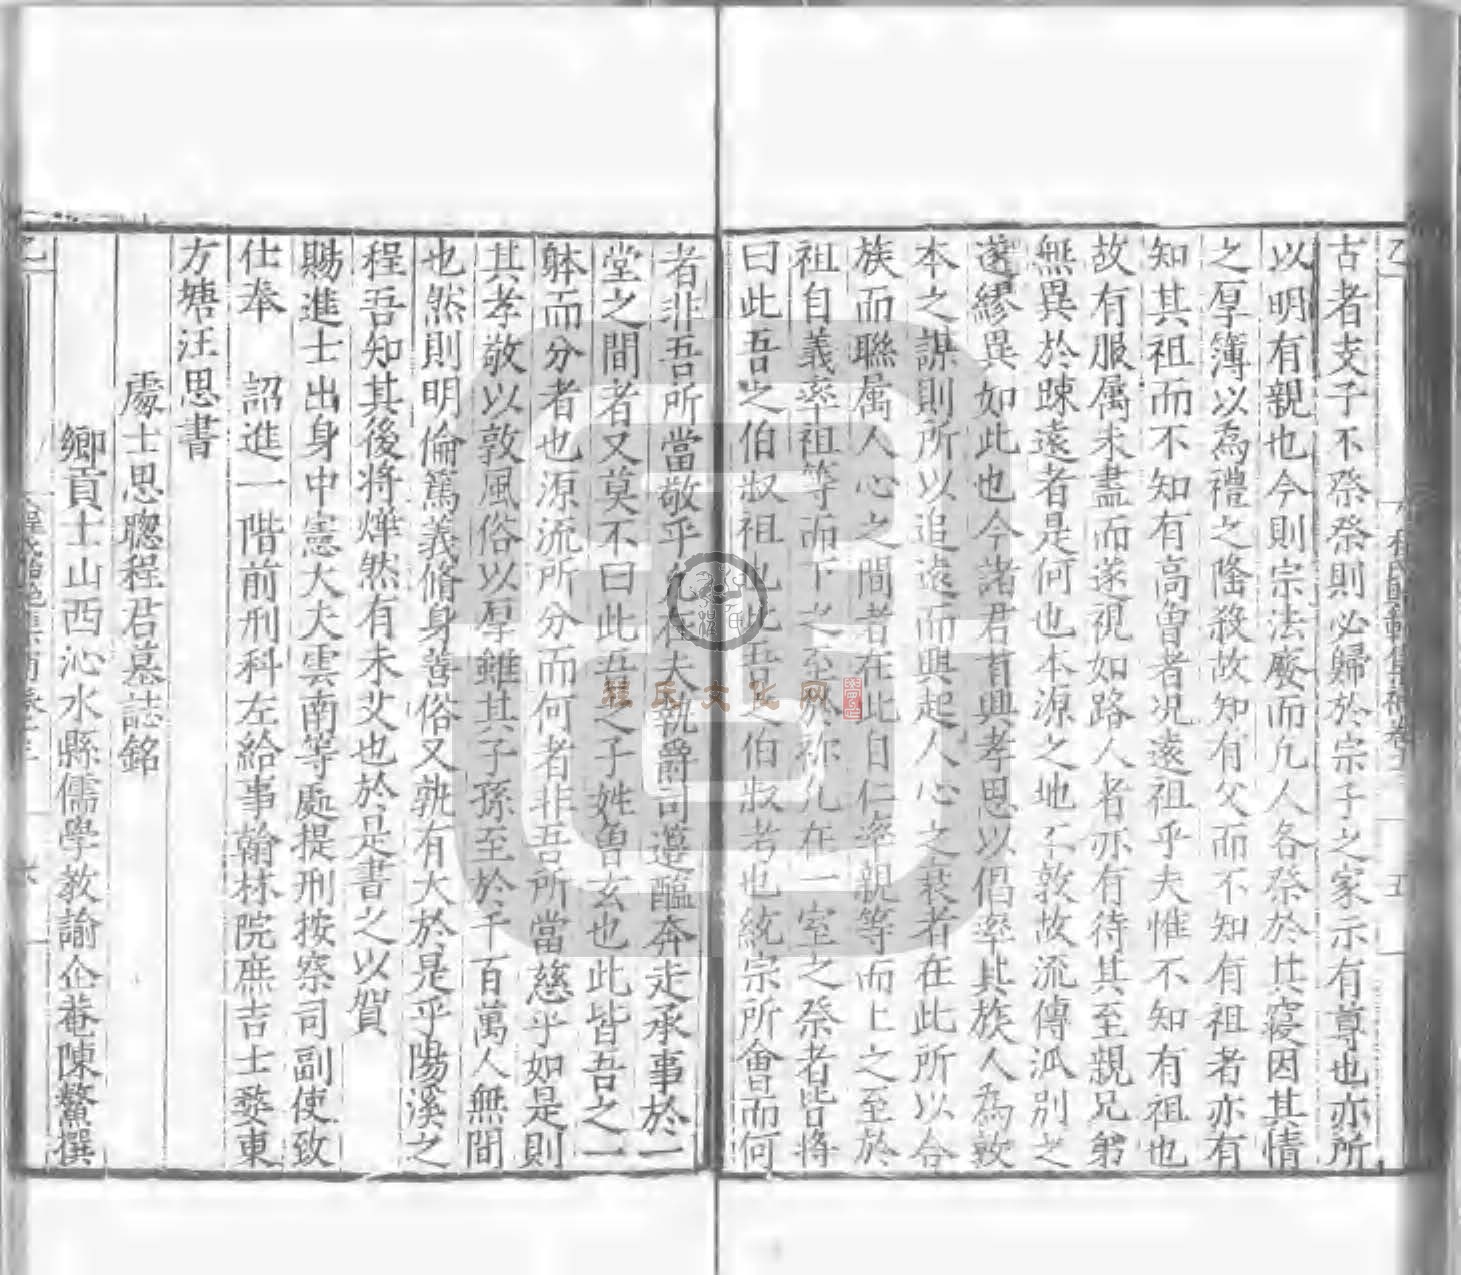 古者支子不祭祭則必歸於宗子之家示有尊也亦所
以明有親也今則宗法廢而凢人各祭於其寝因其情
之厚簿以為禮之隆殺故知有父而不知有祖者亦有
知其祖而不知有高曽者况遠祖乎夫惟不知有祖也
故有服属未盡而遂視如路人者亦有待其至親兄弟
無異於踈遠者是何也本源之地不敦故流傳泒别之
遂繆異如此也今諸君首興孝思以倡率其族人為敦
本之謀則所以追遠而興起人心之衰者在此所以合
族而聯属人心之間者在此自仁率親等而上之至於
祖自義率祖等而下之至於祢凢在一室之祭者皆將
曰此吾之伯叔祖也此吾之伯叔考也統宗所會而何
者非吾所當敬乎凢在夫執爵司籩醖奔走承事於一
堂之間者又莫不曰此吾之子姓曽玄也此皆吾之一
躰而分者也源流所分而何者非吾所當慈乎如是則
其孝敬以敦風俗以厚雖其子孫至於千百萬人無間
也然則明倫篤義脩身善俗又孰有大於是乎陽溪之
程吾知其後將燁然有未艾也於是書之以賀
賜進士出身中憲大夫雲南等處提刑按察司副使致
仕奉 詔進一階前刑科左給事翰林院庶吉士婺東
方塘汪思書
處士思聰程君墓誌銘
鄉貢士山西沁水縣儒學教諭企菴陳鰲撰
程氏文化网